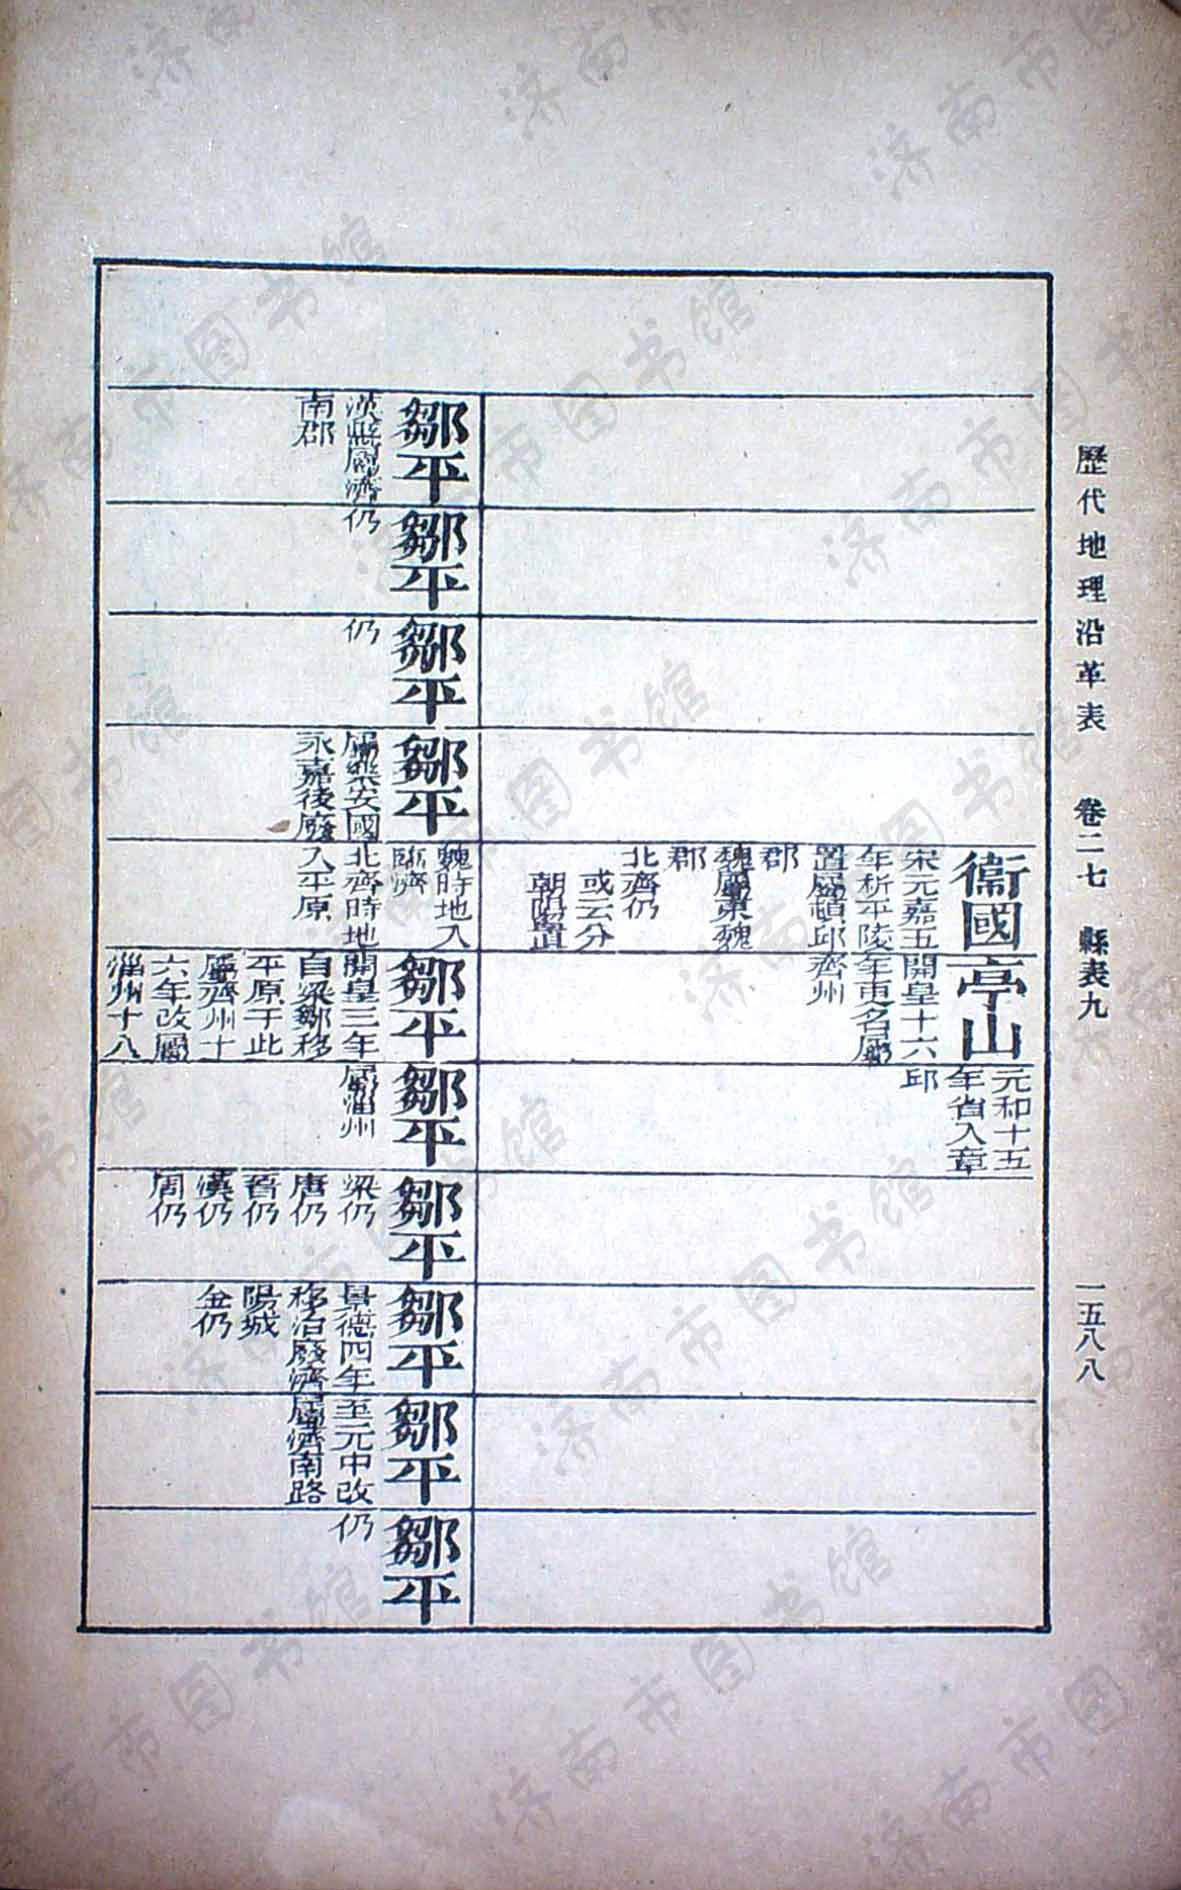 歷代地理沿革表 卷二七 縣表九 一五八八
衞國
宋元嘉五
年析平陵
置屬頓邱
郡
魏屬東魏
郡
北齊仍
或云分
朝陽置
亭山
開皇十六
年更名屬
齊州
元和十五
年省入章
邱
鄒平
漢縣屬濟
南郡
鄒平
仍
鄒平
仍
鄒平
屬樂安國
永嘉後廢
魏時地入
臨濟
北齊時地
入平原
鄒平
開皇三年
自梁鄒移
平原于此
屬齊州十
六年改屬
淄州十八
鄒平
屬淄州
鄒平
梁仍
唐仍
晉仍
漢仍
周仍
鄒平
景德四年
移治廢濟
陽城
金仍
鄒平
至元中改
屬濟南路
鄒平
仍
济南市图书馆